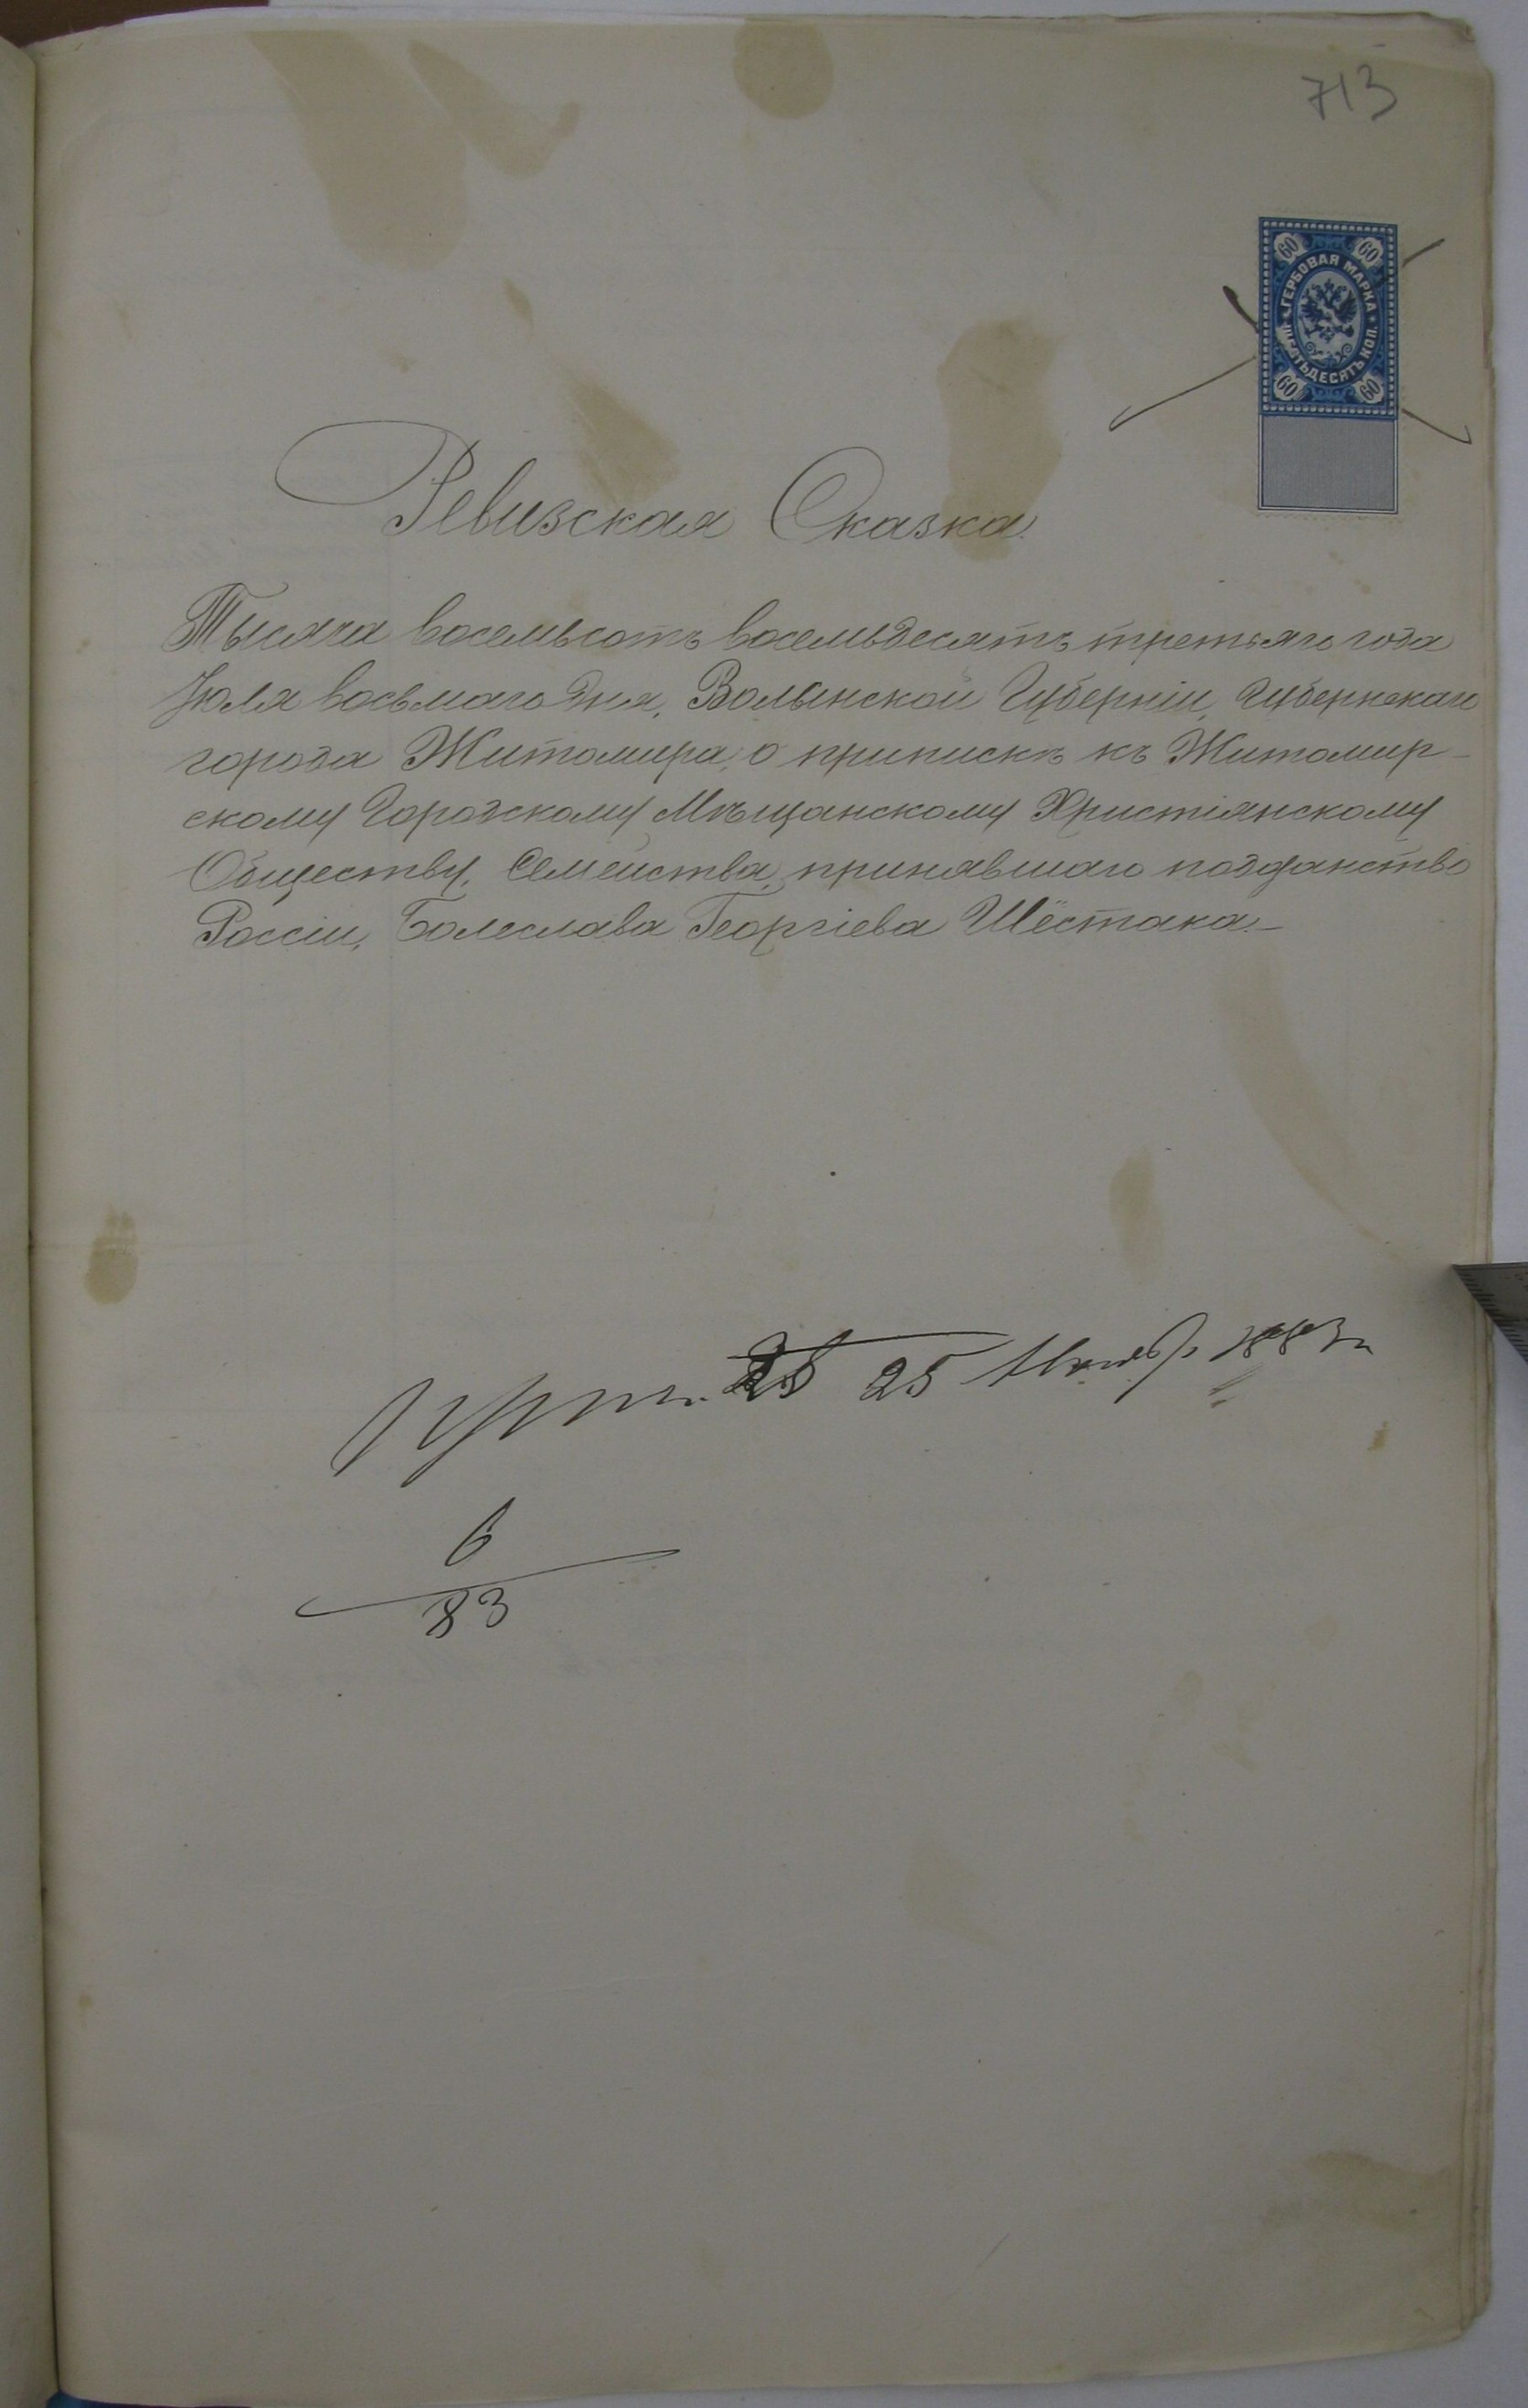 713
60 60
ГЕРБОВАЯ МАРКА
ШЕСТЬДЕСЯТЪ КОП.
60 60
Ревизская Сказка.
Тысяча восемьсотъ восемьдесятъ третьяго года
Іюля восьмаго дня, Волынской Губерніи, Губернскаго
города Житомира, о припискѣ къ Житомир-
скому Городскому Мѣщанскому Христіянскому
Обществу, Семейства, принявшаго подданство
Россіи, Болеслава Георгіева Шёстака.—
25 1883 г.
6
83